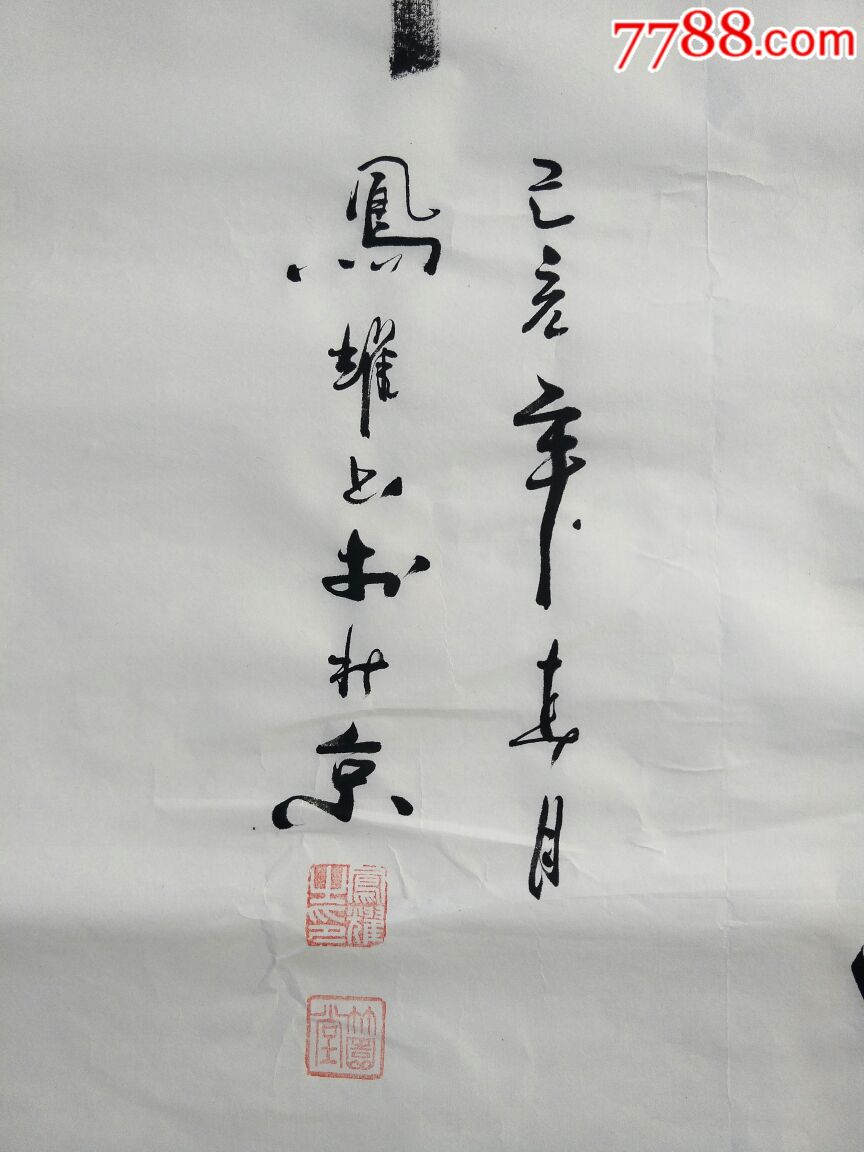 7788.com
己亥年春月
鳳耀书於北京
鳳耀之印
堂